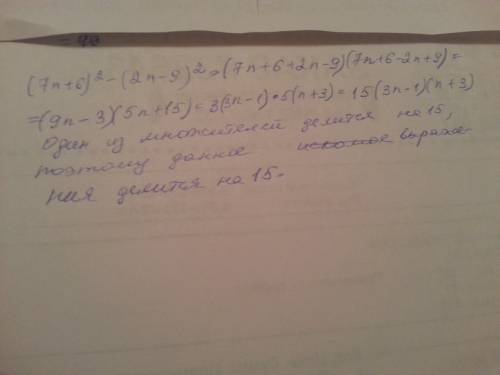 (7n+6)²-(2n-9)²=(7n+6+2n-9)(7n+6-2n+9)=
=(9n-3)(5n+15)=3(3n-1)•5(n+3)=15(3n-1)(n+3)
Один из множителей делится на 15,
поэтому данное искомое выраже-
ния делится на 15.